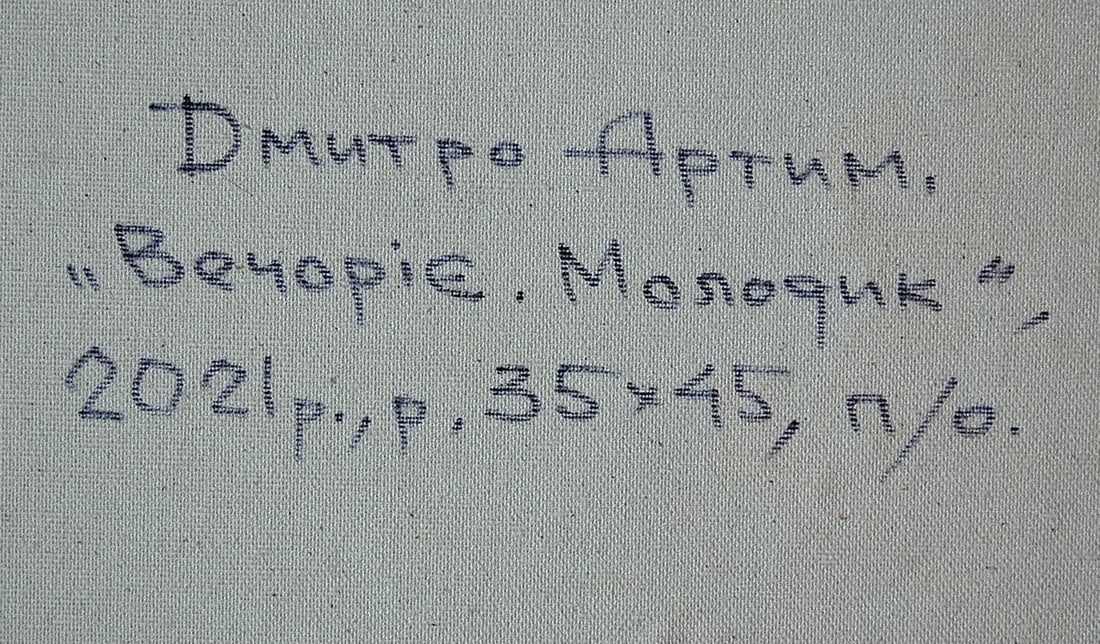 Дмитро Артим.
„Вечоріє. Молодик“,
2021р., р. 35×45, п/о.